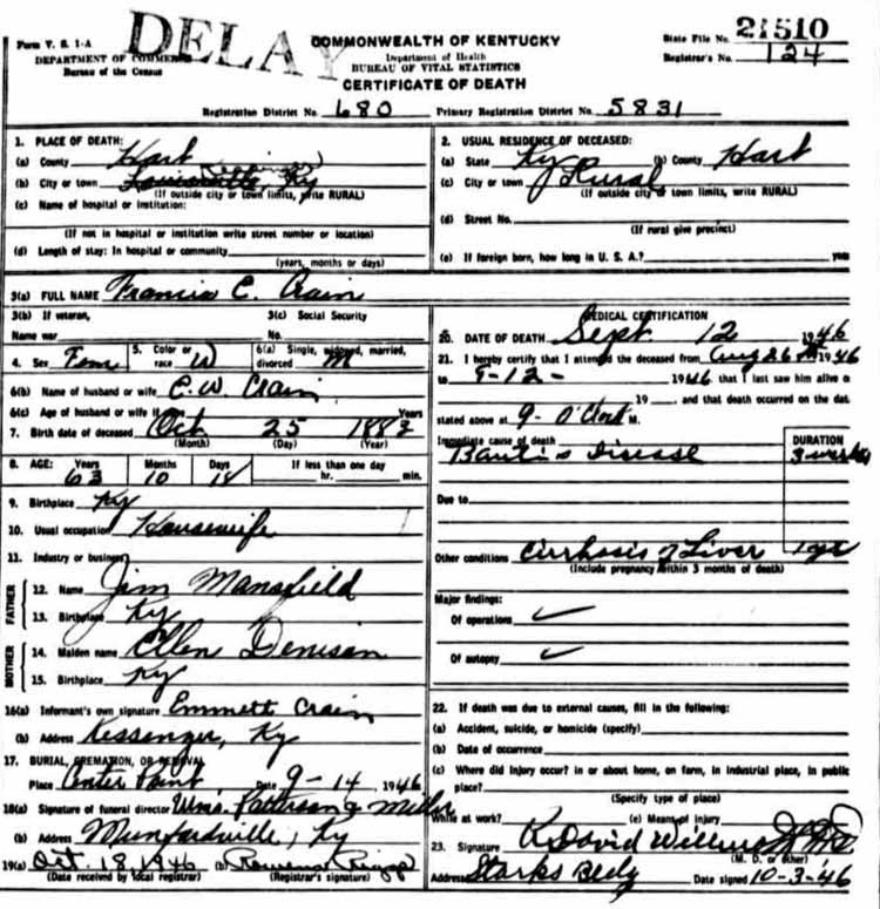 DELAY
Form V. S. 1-A
DEPARTMENT OF COMMERCE
Bureau of the Census
COMMONWEALTH OF KENTUCKY
Department of Health
BUREAU OF VITAL STATISTICS
CERTIFICATE OF DEATH
State File No. 21510
Registrar's No. 124
Registration District No. 680 Primary Registration District No. 5831
1. PLACE OF DEATH:
(a) County Hart
(b) City or town Louisville, Ky
(If outside city or town limits, write RURAL)
(c) Name of hospital or institution:
(If not in hospital or institution write street number or location)
(d) Length of stay: In hospital or community
(years, months or days)
2. USUAL RESIDENCE OF DECEASED:
(a) State Ky (b) County Hart
(c) City or town Rural
(If outside city or town limits, write RURAL)
(d) Street No.
(If rural give precinct)
(e) If foreign born, how long in U. S. A.? years
3(a) FULL NAME Francis C. Crain
3(b) If veteran,
Name war
3(c) Social Security
No.
4. Sex Fem 5. Color or race W 6(a) Single, widowed, married, divorced M
6(b) Name of husband or wife C. W. Crain
6(c) Age of husband or wife if Years
7. Birth date of deceased Oct 25 1883
(Month) (Day) (Year)
8. AGE: Years Months Days If less than one day
63 10 18 hr. min.
9. Birthplace Ky
10. Usual occupation Housewife
11. Industry or business
FATHER
12. Name Jim Mansfield
13. Birthplace Ky
MOTHER
14. Maiden name Ellen Denisan
15. Birthplace Ky
16(a) Informant's own signature Emmett Crain
(b) Address Kessenger, Ky
17. BURIAL, CREMATION, OR REMOVAL
Place Center Point Date 9-14, 1946
18(a) Signature of funeral director Patterson & Miller
(b) Address Munfordville, Ky
19(a) Oct. 18, 1946 (b) Riggs
(Date received by local registrar) (Registrar's signature)
MEDICAL CERTIFICATION
20. DATE OF DEATH Sept. 12 1946
21. I hereby certify that I attended the deceased from Aug 26 1946
to 9-12- 1946 that I last saw him alive o
19 , and that death occurred on the dat
stated above at 9- O'Clock M.
Immediate cause of death DURATION
Banti's Disease 3 weeks
Due to
Other conditions Cirrhosis of Liver 1 yr
(Include pregnancy within 3 months of death)
Major findings:
Of operations ✓
Of autopsy ✓
22. If death was due to external causes, fill in the following:
(a) Accident, suicide, or homicide (specify)
(b) Date of occurrence
(c) Where did injury occur? in or about home, on farm, in industrial place, in public
place?
(Specify type of place)
While at work? (e) Means of injury
23. Signature David M.D.
(M. D. or other)
Address Starks Bldg Date signed 10-3-46